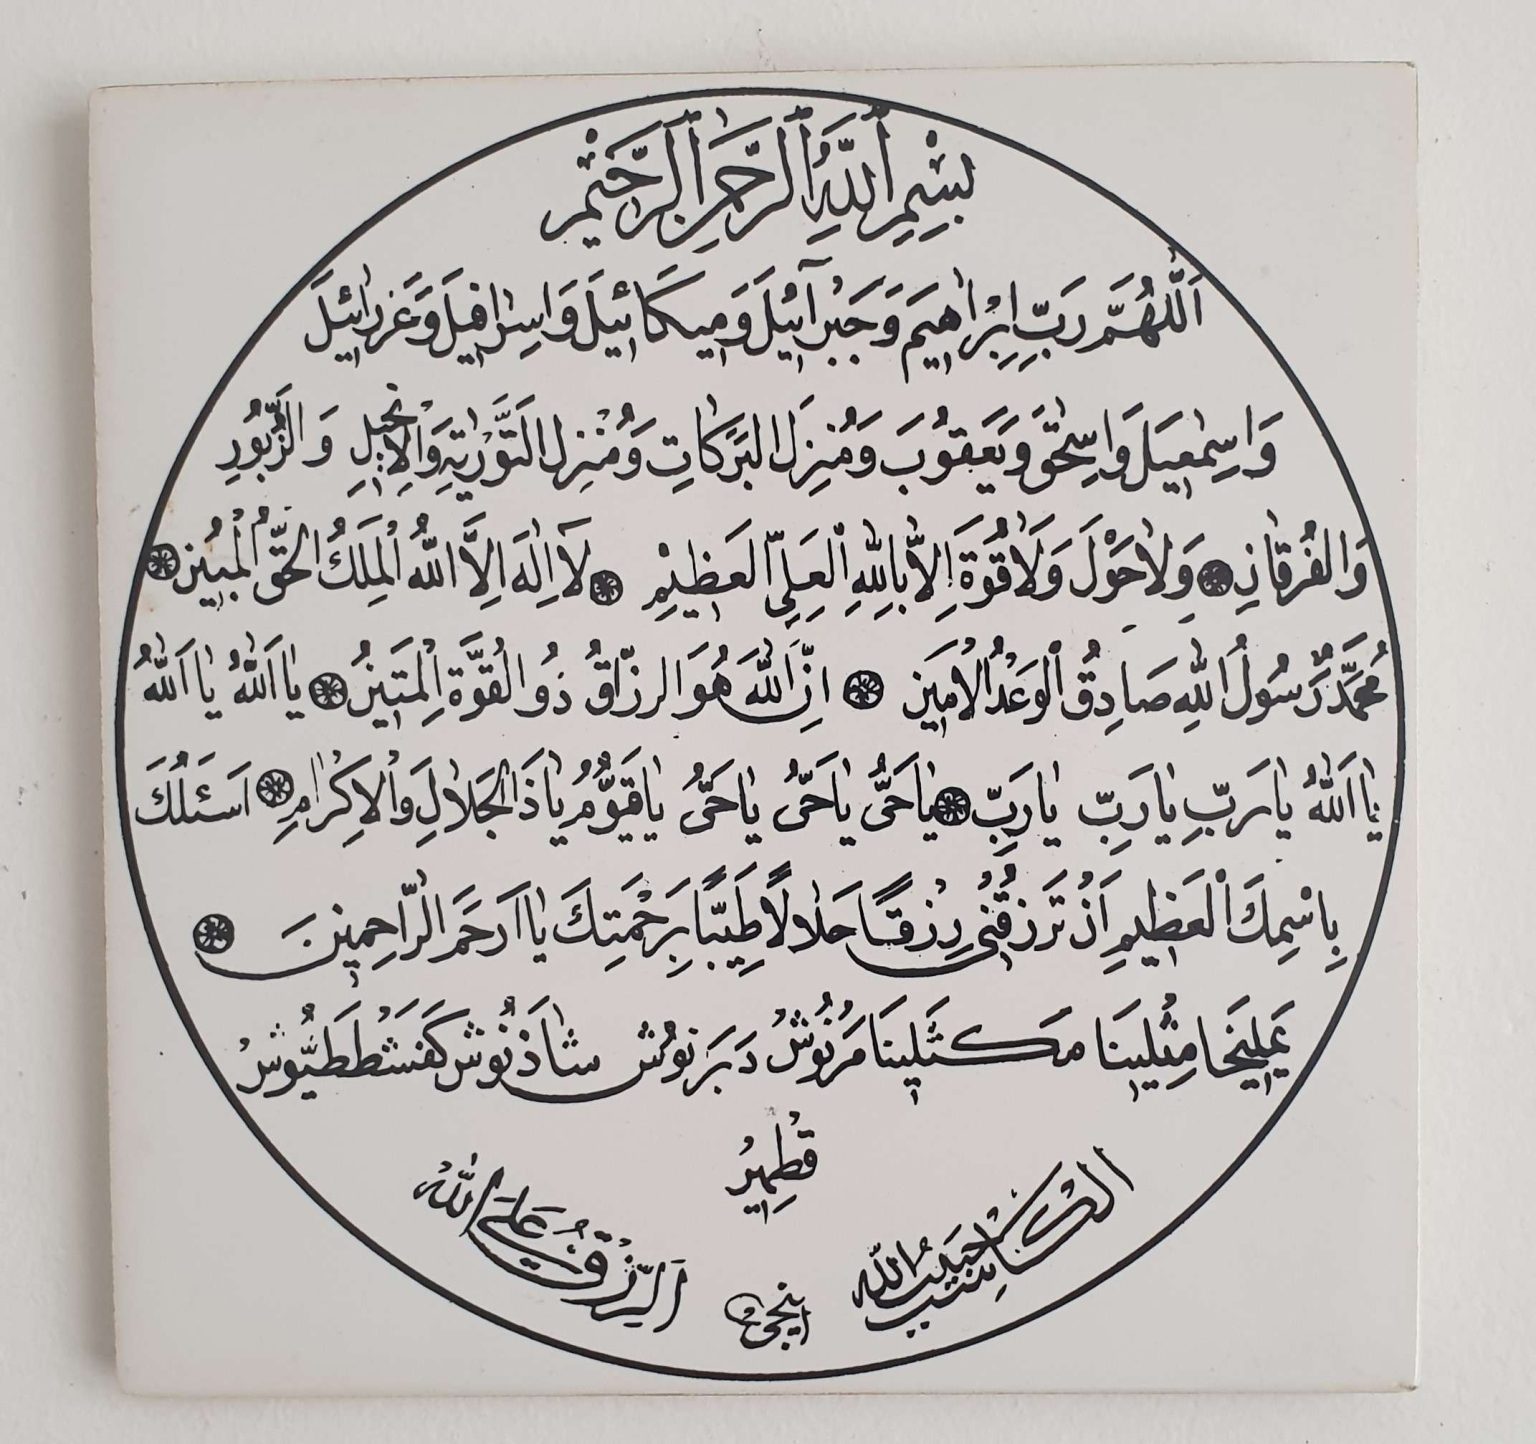 بِسْمِ ٱللَّهِ ٱلرَّحْمَٰنِ ٱلرَّحِيْمِ
اَللّٰهُمَّ رَبِّ اِبْرَاهِيمَ وَجَبْرَآئِيْلَ وَمِيكَائِيلَ وَاِسْرَافِيلَ وَعَزْرَائِيْلَ
وَاِسْمٰعِيلَ وَاِسْحٰقَ وَيَعْقُوبَ وَمُنْزِلَ البَرَكَاتِ وَمُنْزِلَ التَّوْرٰيةِ وَالْاِنْجِيلِ وَالزَّبُورِ
وَالفُرْقَانِ وَلاَ حَوْلَ وَلَا قُوَّةَ اِلاَّ بِاللّٰهِ الْعَلِىِّ الْعَظِيْمِ لَآ اِلٰهَ اِلاَّ اللّٰهُ الْمَلِكُ الْحَقُّ الْمُبِيْنُ
مُحَمَّدٌ رَسُولُ اللّٰهِ صَادِقُ الْوَعْدُ الْاَمِينَ اِنَّ اللّٰهَ هُوَ الرزّاقُ ذُو الْقُوَّةِ الْمَتِينُ يٰا اَللّٰهُ يٰا اَللّٰهُ
يٰا اَللّٰهُ يٰا رَبِّ يٰا رَبِّ يٰا رَبِّ يٰا حَىُّ يٰا حَىُّ يٰا حَىُّ يٰا قَيُّومُ يٰا ذَا الْجَلَالِ وَالْاِكْرَامِ اَسْئَلُكَ
بِاسْمِكَ الْعَظِيمِ اَنْ تَرْزُقَنِى رِزْقًا حَلَالًا طَيِّبًا بِرَحْمَتِكَ يٰا اَرْحَمَ الرَّاحِمِينَ
يَمْلِيخَا مِثْلِينَا مَكْثَلِينَا مَرْنُوشْ دَبَرْنُوشْ شَاذَنُوشْ كَفَشْطَطَيُّوشْ
قِطْمِيرْ
الكاتب حبيب الله
اَلرِّزْقُ عَلَى اللّٰهِ